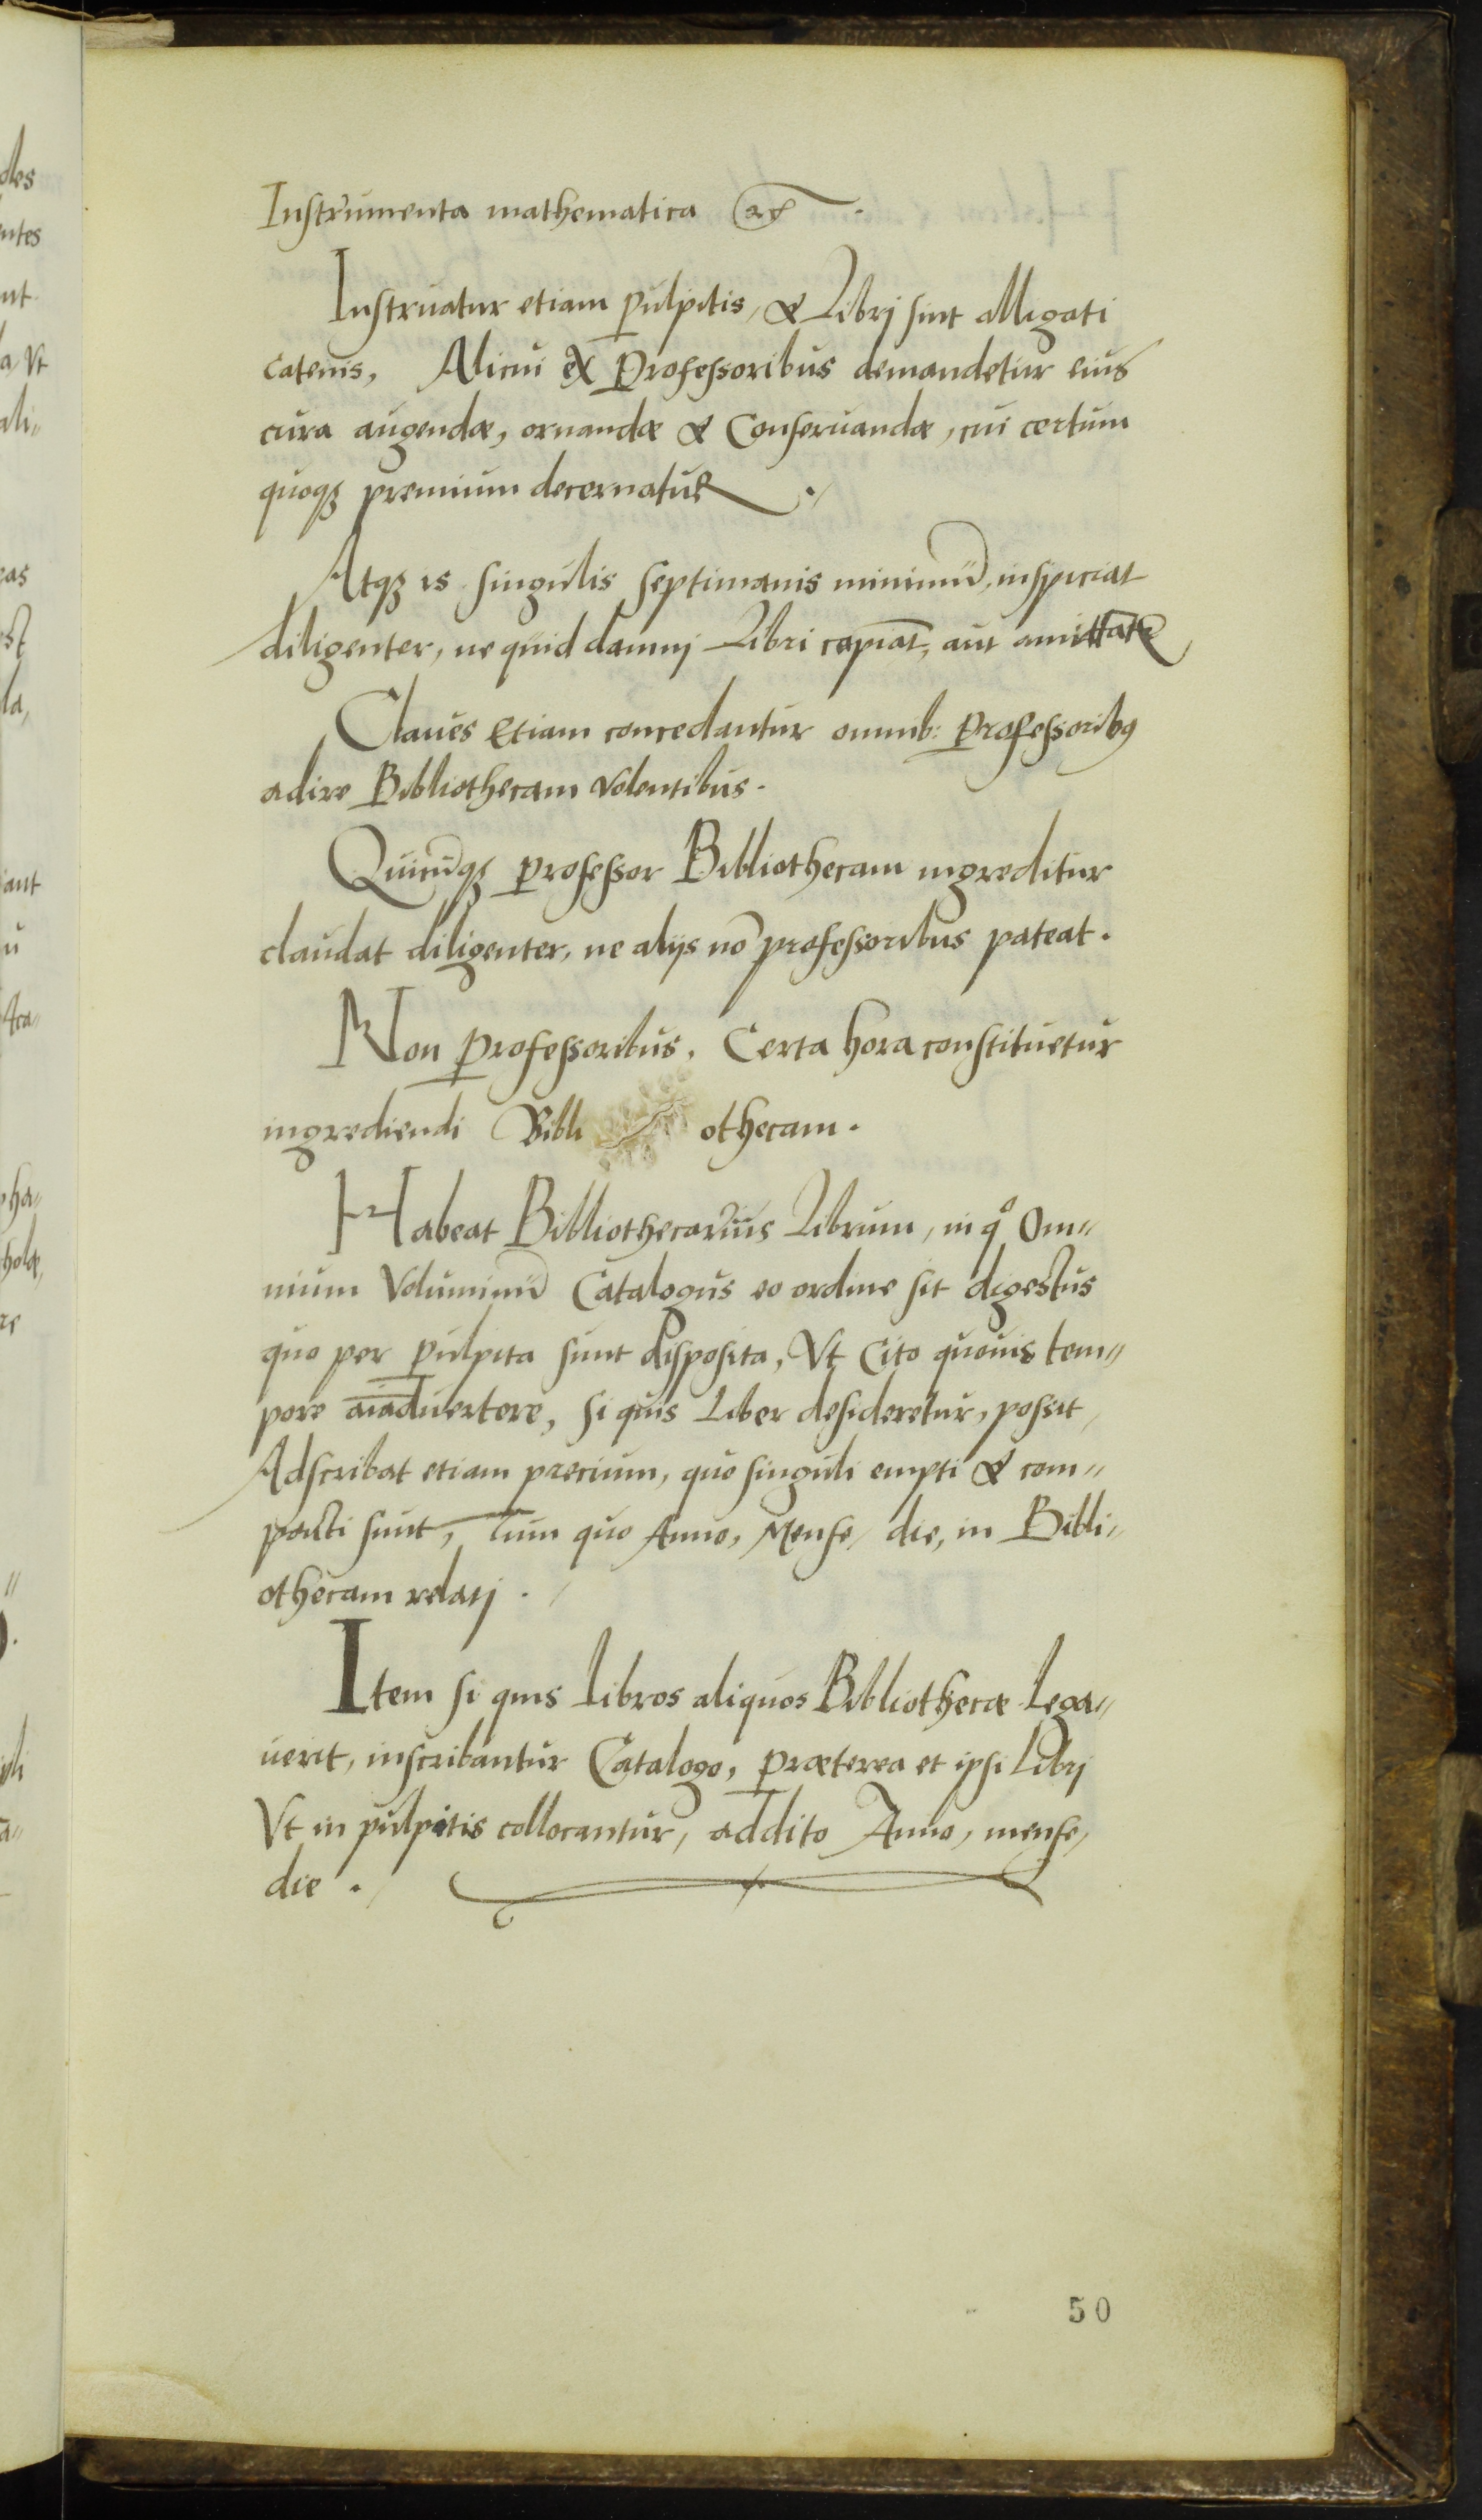 Instrumenta mathematica &c.
Instruatur etiam pulpitis, & Librj sint alligati
catenis, Alicui ex Professoribus demandetur eius
cura augendæ, ornandæ & Conseruandæ, cui certum
quoqꝫ premium decernatur ./
Atqꝫ is singulis septimanis minimũ, inspiciat
diligenter, ne quid damnj Libri capiāt, aut amittātr
Claues Etiam concedantur omnib: Professoribꝰ
adire Bibliothecam volentibus.
Quicūqꝫ professor Bibliothecam ingreditur
claudat diligenter, ne alijs nō professoribus pateat.
Non professoribus, Certa hora constituetur
ingrediendi Bibli othecam.
Habeat Bibliothecariũs Librum, in qº Om〃
nium Voluminũ Catalogus eo ordine sit digestus
quo per pulpita sunt disposita, Vt Cito quouis tem〃
pore aīaduertere, si quis Liber desideretur, possit,
Adscribat etiam precium, quo singuli empti & com〃
pacti sunt, Tum quo Anno, Mense, die, in Bibli〃
othecam relatj ./
Item si quis libros aliquos Bibliothecæ Lega〃
uerit, inscribantur Catalogo, præterea et ipsi Librj
Vt in pulpitis collocantur, addito Anno, mense,
die ./
50
des
entes
nt
a, Vt
ali〃
eas
est
la,
iant
u
Aca〃
ha〃
holæ,
re
〃